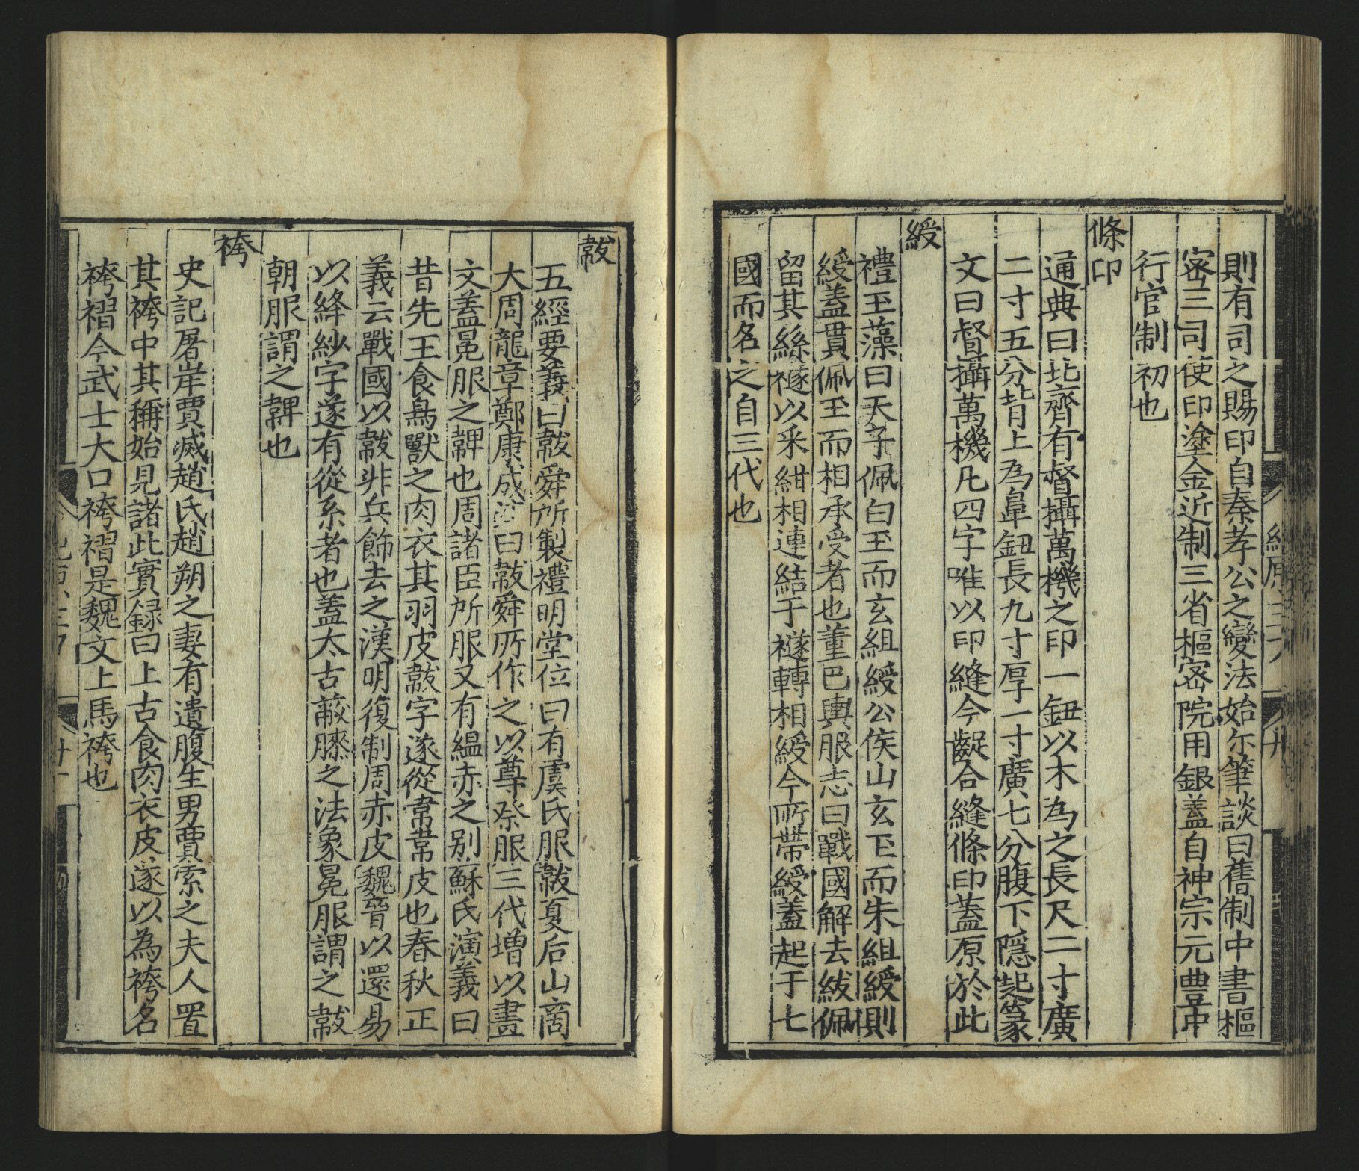 則有司之賜印自秦孝公之變法始尓筆談曰舊制中書樞
密三司使印塗金近制三省樞密院用銀蓋自神宗元豊中
行官制初也
條印
通典曰北齊有督攝萬機之印一鈕以木為之長尺二寸廣
二寸五分背上為鼻鈕長九寸厚一寸廣七分腹下隱起篆
文曰督攝萬機凡四字唯以印縫今齪合縫條印蓋原於此
綬
禮玉藻曰天子佩白玉而玄組綬公侯山玄玉而朱組綬則
綬蓋貫佩玉而相承受者也董巴輿服志曰戰國解去紱佩
留其絲襚以采紺相連結于襚轉相綬今所帶綬蓋起于七
國而名之自三代也
韍
五經要義曰韍舜所製禮明堂位曰有虞氏服韍夏后山商
大周龍章鄭康成註曰韍舜所作之以尊祭服三代增以畫
文蓋冕服之韠也周諸臣所服又有縕赤之别蘇氏演義曰
昔先王食鳥獸之肉衣其羽皮韍字遂從韋韋皮也春秋正
義云戰國以韍非兵飾去之漢明復制周赤皮魏晉以還易
以絳紗字遂有從糸者也蓋太古蔽膝之法象冕服謂之韍
朝服謂之韠也
袴
史記屠岸賈滅趙氏趙朔之妻有遺腹生男賈索之夫人置
其袴中其稱始見諸此實録曰上古食肉衣皮遂以為袴名
袴褶今武士大口袴褶是魏文上馬袴也